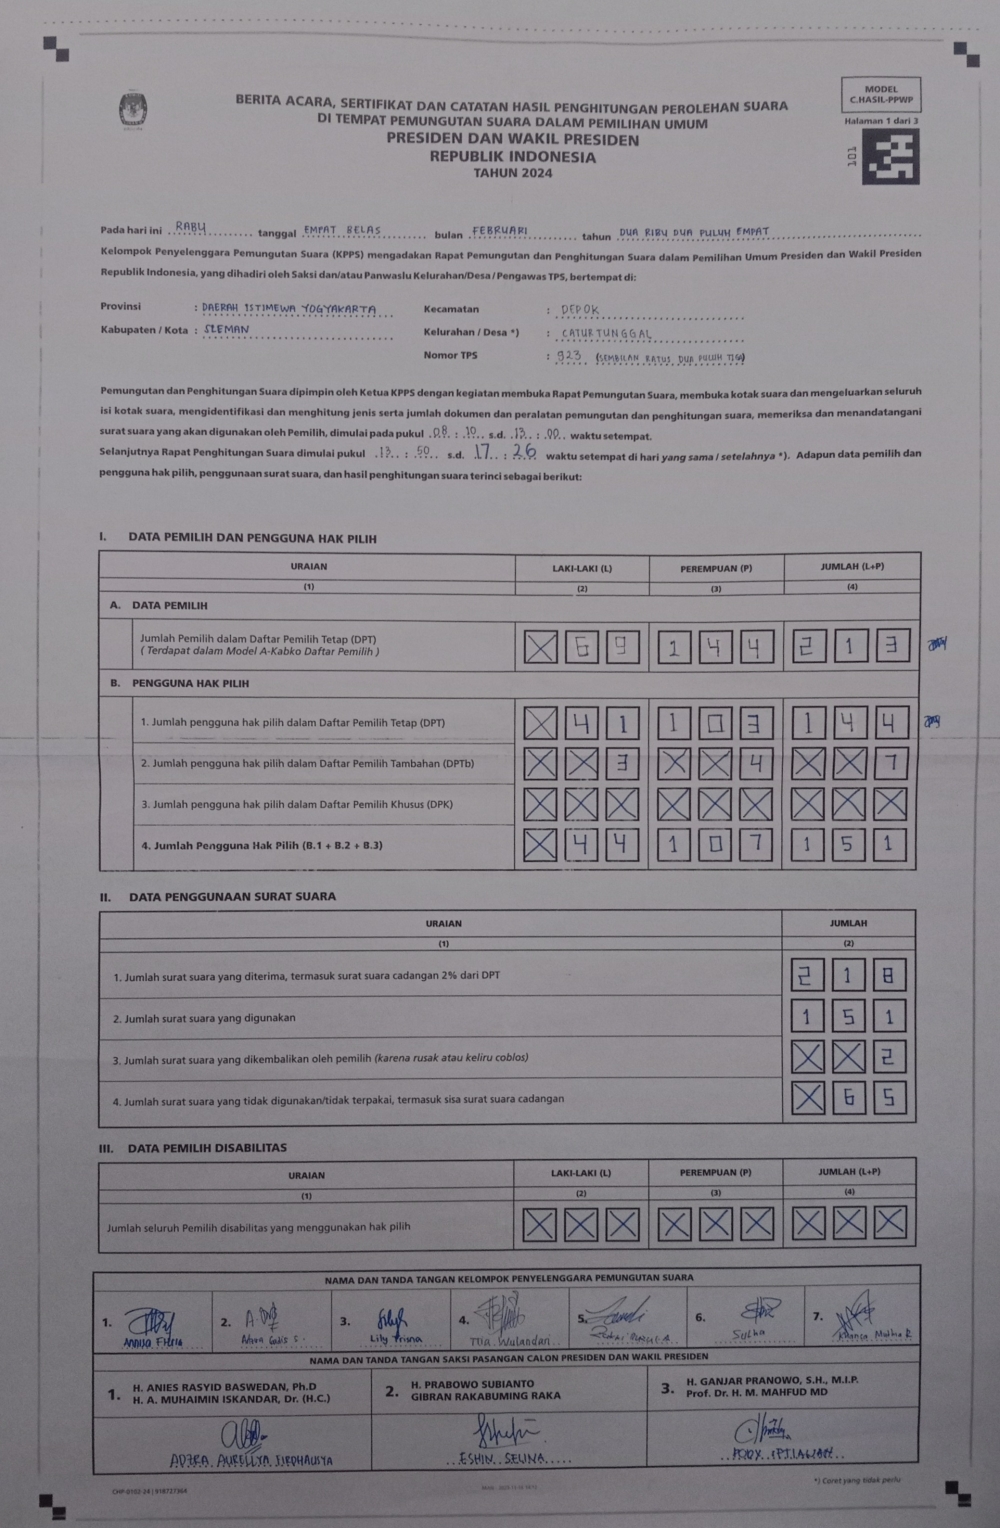 MODEL
C.HASIL-PPWP
Halaman 1 dari 3
101
BERITA ACARA, SERTIFIKAT DAN CATATAN HASIL PENGHITUNGAN PEROLEHAN SUARA
DI TEMPAT PEMUNGUTAN SUARA DALAM PEMILIHAN UMUM
PRESIDEN DAN WAKIL PRESIDEN
REPUBLIK INDONESIA
TAHUN 2024
Pada hari ini RABU tanggal EMPAT BELAS bulan FEBRUARI tahun DUA RIBU DUA PULUH EMPAT
Kelompok Penyelenggara Pemungutan Suara (KPPS) mengadakan Rapat Pemungutan dan Penghitungan Suara dalam Pemilihan Umum Presiden dan Wakil Presiden
Republik Indonesia, yang dihadiri oleh Saksi dan/atau Panwaslu Kelurahan/Desa / Pengawas TPS, bertempat di:
Provinsi : DAERAH ISTIMEWA YOGYAKARTA Kecamatan : DEPOK
Kabupaten / Kota : SLEMAN Kelurahan / Desa *) : CATUR TUNGGAL
Nomor TPS : 923 (SEMBILAN RATUS DUA PULUH TIGA)
Pemungutan dan Penghitungan Suara dipimpin oleh Ketua KPPS dengan kegiatan membuka Rapat Pemungutan Suara, membuka kotak suara dan mengeluarkan seluruh
isi kotak suara, mengidentifikasi dan menghitung jenis serta jumlah dokumen dan peralatan pemungutan dan penghitungan suara, memeriksa dan menandatangani
surat suara yang akan digunakan oleh Pemilih, dimulai pada pukul 08 : 10 s.d. 13 : 00 waktu setempat.
Selanjutnya Rapat Penghitungan Suara dimulai pukul 13 : 50 s.d. 17 : 26 waktu setempat di hari yang sama / setelahnya *). Adapun data pemilih dan
pengguna hak pilih, penggunaan surat suara, dan hasil penghitungan suara terinci sebagai berikut:
I. DATA PEMILIH DAN PENGGUNA HAK PILIH
URAIAN LAKI-LAKI (L) PEREMPUAN (P) JUMLAH (L+P)
(1) (2) (3) (4)
A. DATA PEMILIH
Jumlah Pemilih dalam Daftar Pemilih Tetap (DPT) X 6 9 1 4 4 2 1 3
( Terdapat dalam Model A-Kabko Daftar Pemilih )
B. PENGGUNA HAK PILIH
1. Jumlah pengguna hak pilih dalam Daftar Pemilih Tetap (DPT) X 4 1 1 0 3 1 4 4
2. Jumlah pengguna hak pilih dalam Daftar Pemilih Tambahan (DPTb) X X 3 X X 4 X X 7
3. Jumlah pengguna hak pilih dalam Daftar Pemilih Khusus (DPK) X X X X X X X X X
4. Jumlah Pengguna Hak Pilih (B.1 + B.2 + B.3) X 4 4 1 0 7 1 5 1
II. DATA PENGGUNAAN SURAT SUARA
URAIAN JUMLAH
(1) (2)
1. Jumlah surat suara yang diterima, termasuk surat suara cadangan 2% dari DPT 2 1 8
2. Jumlah surat suara yang digunakan 1 5 1
3. Jumlah surat suara yang dikembalikan oleh pemilih (karena rusak atau keliru coblos) X X 2
4. Jumlah surat suara yang tidak digunakan/tidak terpakai, termasuk sisa surat suara cadangan X 6 5
III. DATA PEMILIH DISABILITAS
URAIAN LAKI-LAKI (L) PEREMPUAN (P) JUMLAH (L+P)
(1) (2) (3) (4)
Jumlah seluruh Pemilih disabilitas yang menggunakan hak pilih X X X X X X X X X
NAMA DAN TANDA TANGAN KELOMPOK PENYELENGGARA PEMUNGUTAN SUARA
1. 2. 3. 4. 5. 6. 7.
Lily Trisna Tua Wulandari Sulha
NAMA DAN TANDA TANGAN SAKSI PASANGAN CALON PRESIDEN DAN WAKIL PRESIDEN
1. H. ANIES RASYID BASWEDAN, Ph.D
H. A. MUHAIMIN ISKANDAR, Dr. (H.C.)
2. H. PRABOWO SUBIANTO
GIBRAN RAKABUMING RAKA
3. H. GANJAR PRANOWO, S.H., M.I.P.
Prof. Dr. H. M. MAHFUD MD
ADZRA AURELLYA ESHIN SELINA
*) Coret yang tidak perlu